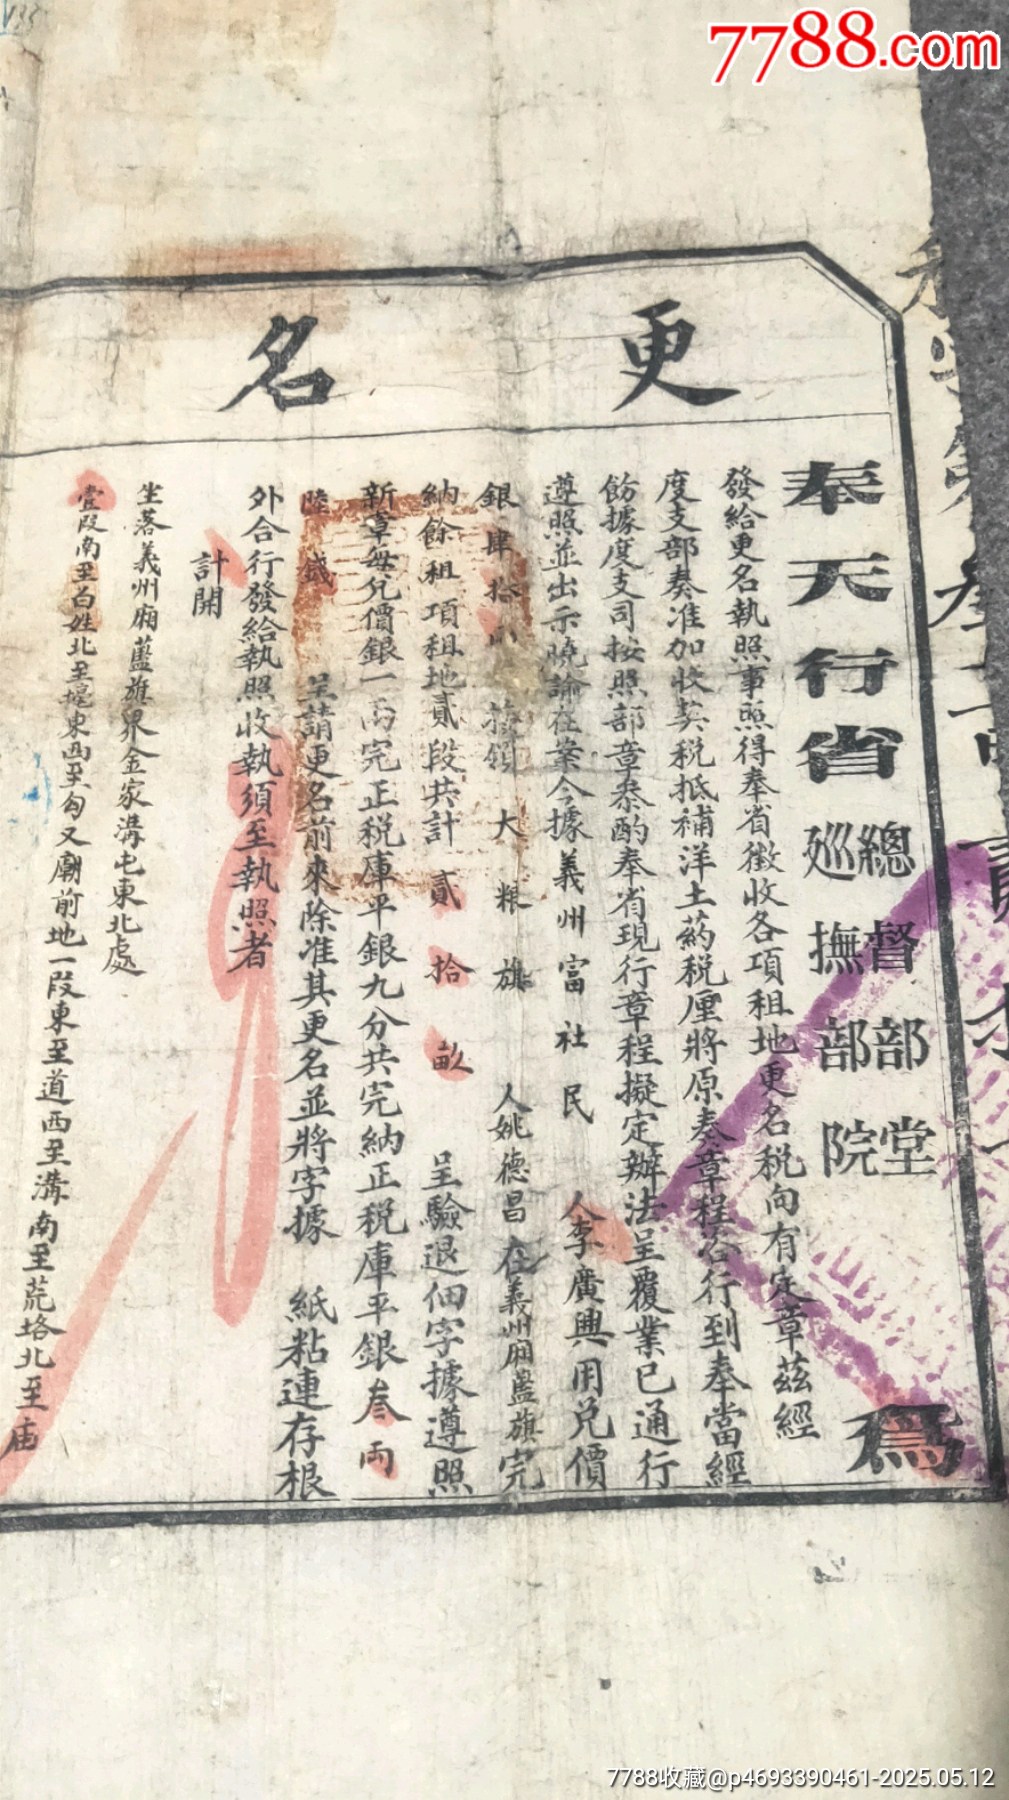 7788.com
更名
奉天行省總督部堂巡撫部院為
發給更名執照事照得奉省徵收各項租地更名税向有定章茲經
度支部奏准加收契税抵補洋土葯税厘將原奏章程咨行到奉當經
飭據度支司按照部章叅酌奉省現行章程擬定辦法呈覆業已通行
遵照並出示曉諭在案今據義州富社民人李廣興用兑價
銀肆拾兩接領大粮旗人姚德昌在義州廂藍旗完
納餘租項租地貳段共計貳拾畝呈驗退佃字據遵照
新章每兑價銀一兩完正税庫平銀九分共完納正税庫平銀叁兩
陸錢呈請更名前來除准其更名並將字據紙粘連存根
外合行發給執照收執須至執照者
計開
坐落義州廂藍旗界金家溝屯東北處
壹段南至白姓北至堰東西至勾又廟前地一段東至道西至溝南至荒垎北至庙
7788收藏@p4693390461-2025.05.12